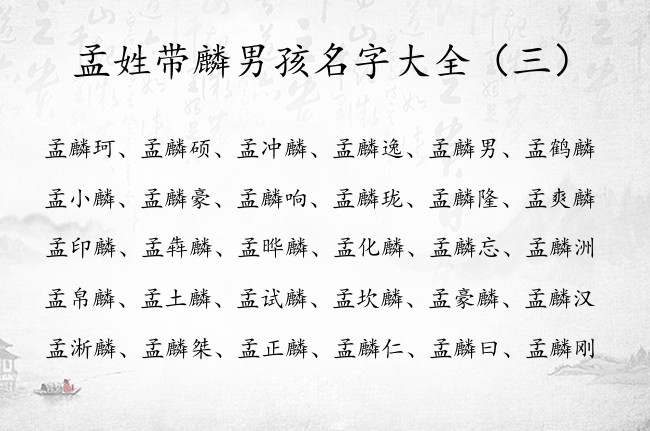 孟姓带麟男孩名字大全（三）
孟麟珂、孟麟硕、孟冲麟、孟麟逸、孟麟男、孟鹤麟
孟小麟、孟麟豪、孟麟响、孟麟珑、孟麟隆、孟爽麟
孟印麟、孟犇麟、孟晔麟、孟化麟、孟麟忘、孟麟洲
孟帛麟、孟土麟、孟试麟、孟坎麟、孟豪麟、孟麟汉
孟淅麟、孟麟桀、孟正麟、孟麟仁、孟麟曰、孟麟刚